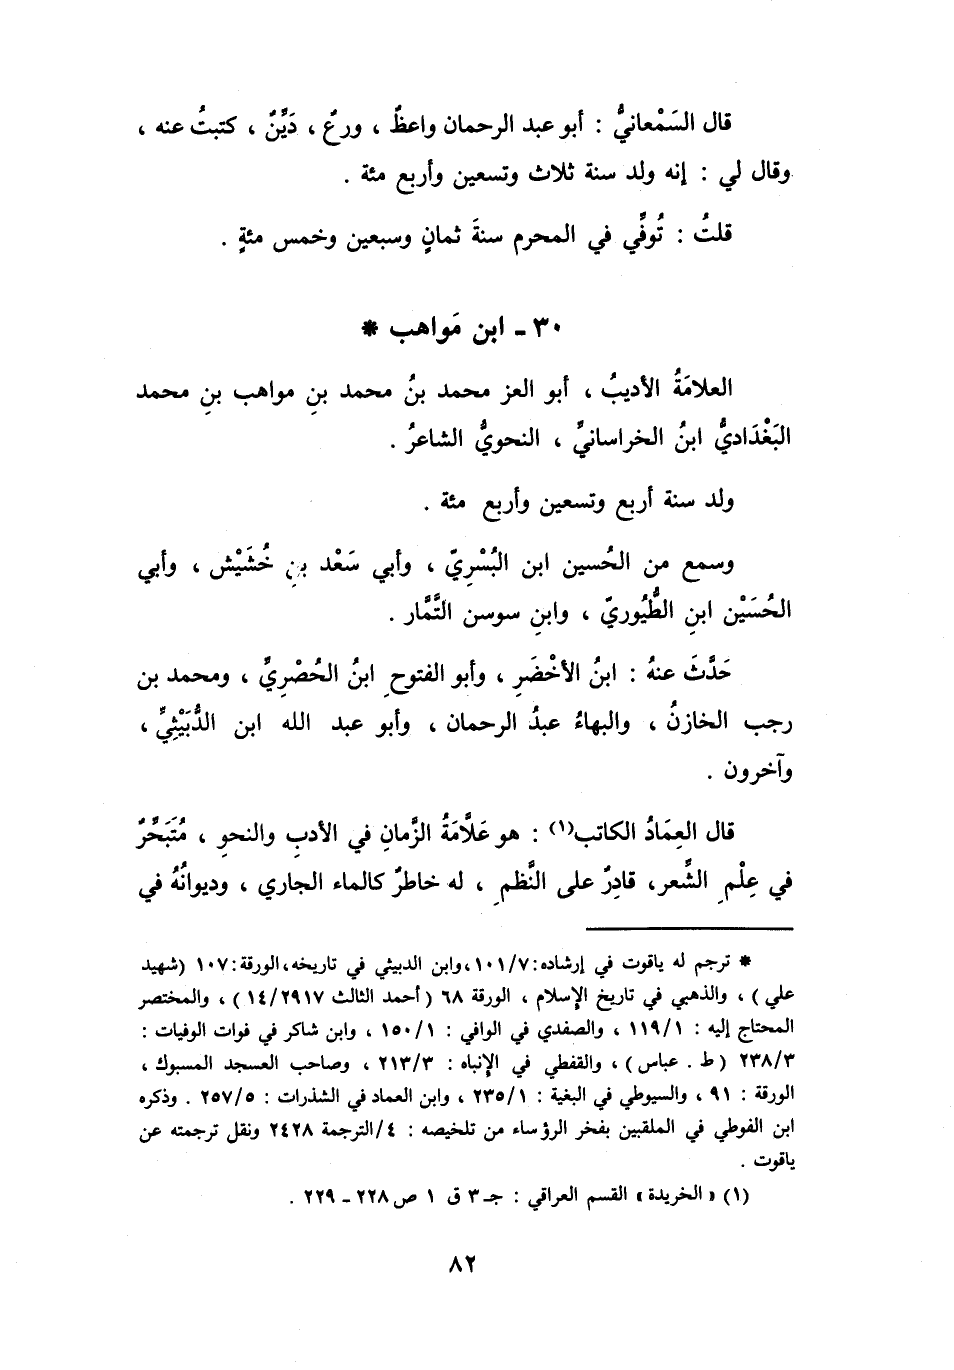 قال السَمْعانيُّ : أبو عبد الرحمان واعظٌ ، ورعٌ ، دَيِّنٌ ، كتبتُ عنه ،
وقال لي : إنه ولد سنة ثلاث وتسعين وأربع مئة .
قلتُ : تُوفِّي في المحرم سنةَ ثمانٍ وسبعين وخمس مئةٍ .
٣٠ ـ ابن مَواهب *
العلامَةُ الأديبُ ، أبو العز محمد بنُ محمد بنِ مواهب بنِ محمد
البَغْدَاديُّ ابنُ الخراسانيِّ ، النحويُّ الشاعرُ .
ولد سنة أربع وتسعين وأربع مئة .
وسمع من الحُسين ابن البُسْرِيّ ، وأبي سَعْد بنِ خُشَيْش ، وأبي
الحُسَيْن ابنِ الطُّيُوريّ ، وابنِ سوسن التَّمَّار .
حَدَّثَ عنهُ : ابنُ الأخْضَرِ ، وأبو الفتوحِ ابنُ الحُصْرِيِّ ، ومحمد بن
رجب الخازنُ ، والبهاءُ عبدُ الرحمان ، وأبو عبد الله ابن الدُّبَيْثِيِّ ،
وآخرون .
قال العِمَادُ الكاتب(١) : هو عَلَّامَةُ الزَّمانِ في الأدبِ والنحوِ ، مُتَبَحِّرٌ
في عِلْمِ الشِّعر، قادِرٌ على النَّظمِ ، له خاطرٌ كالماء الجاري ، وديوانُهُ في
* ترجم له ياقوت في إرشاده: ١٠١/٧،وابن الدبيثي في تاريخه،الورقة: ١٠٧ (شهيد
علي) ، والذهبي في تاريخ الإسلام ، الورقة ٦٨ (أحمد الثالث ١٤/٢٩١٧) ، والمختصر
المحتاج إليه : ١١٩/١ ، والصفدي في الوافي : ١٥٠/١ ، وابن شاكر في فوات الوفيات :
٢٣٨/٣ (ط . عباس) ، والقفطي في الإنباه : ٢١٣/٣ ، وصاحب العسجد المسبوك ،
الورقة : ٩١ ، والسيوطي في البغية : ٢٣٥/١ ، وابن العماد في الشذرات : ٢٥٧/٥ . وذكره
ابن الفوطي في الملقبين بفخر الرؤساء من تلخيصه : ٤/الترجمة ٢٤٢٨ ونقل ترجمته عن
ياقوت .
(١) « الخريدة » القسم العراقي : جـ ٣ ق ١ ص ٢٢٨ ـ ٢٢٩ .
٨٢